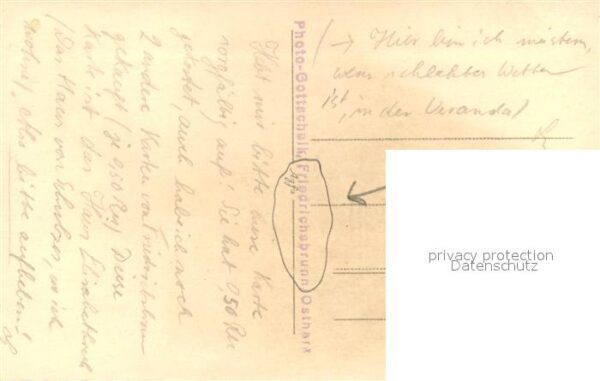 (→ Hier bin ich meistens,
wenn schlechtes Wetter
ist, in der Veranda)
Photo-Gottschalk, Friedrichsbrunn Ostharz
Hebt mir bitte diese Karte
sorgfältig auf! Sie hat 0,50 RM
gekostet, auch habe ich noch
2 andere Karten von Friedrichsbrunn
gekauft (je 0,50 RM) Diese
Karte ist das Haus
(Das Haus von, wo ich
wohne). Also bitte aufheben!
privacy protection
Datenschutz